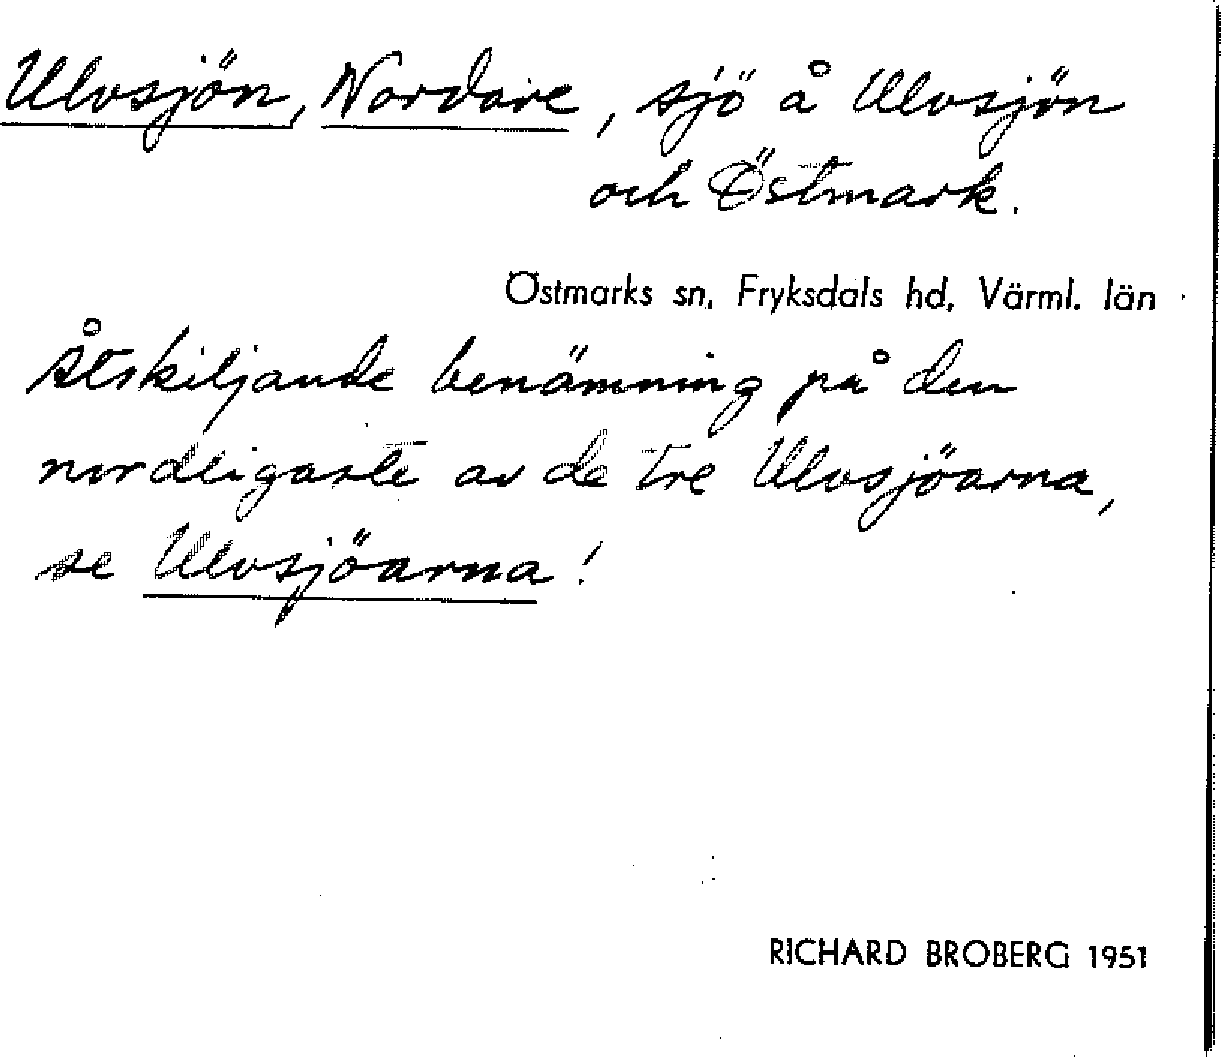 Ulvsjön, Nordare, sjö å Ulvsjön
och Östmark.
Östmarks sn, Fryksdals hd, Värml. län
Åtskiljande benämning på den
nordligaste av de tre Ulvsjöarna,
se Ulvsjöarna!
RICHARD BROBERG 1951